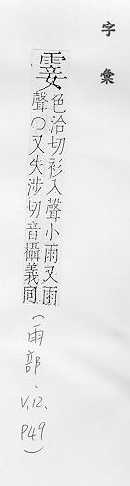 字彙
霎
色洽切衫入聲小雨又雨
聲○又失涉切音攝義同
(雨部.V.12.P49)